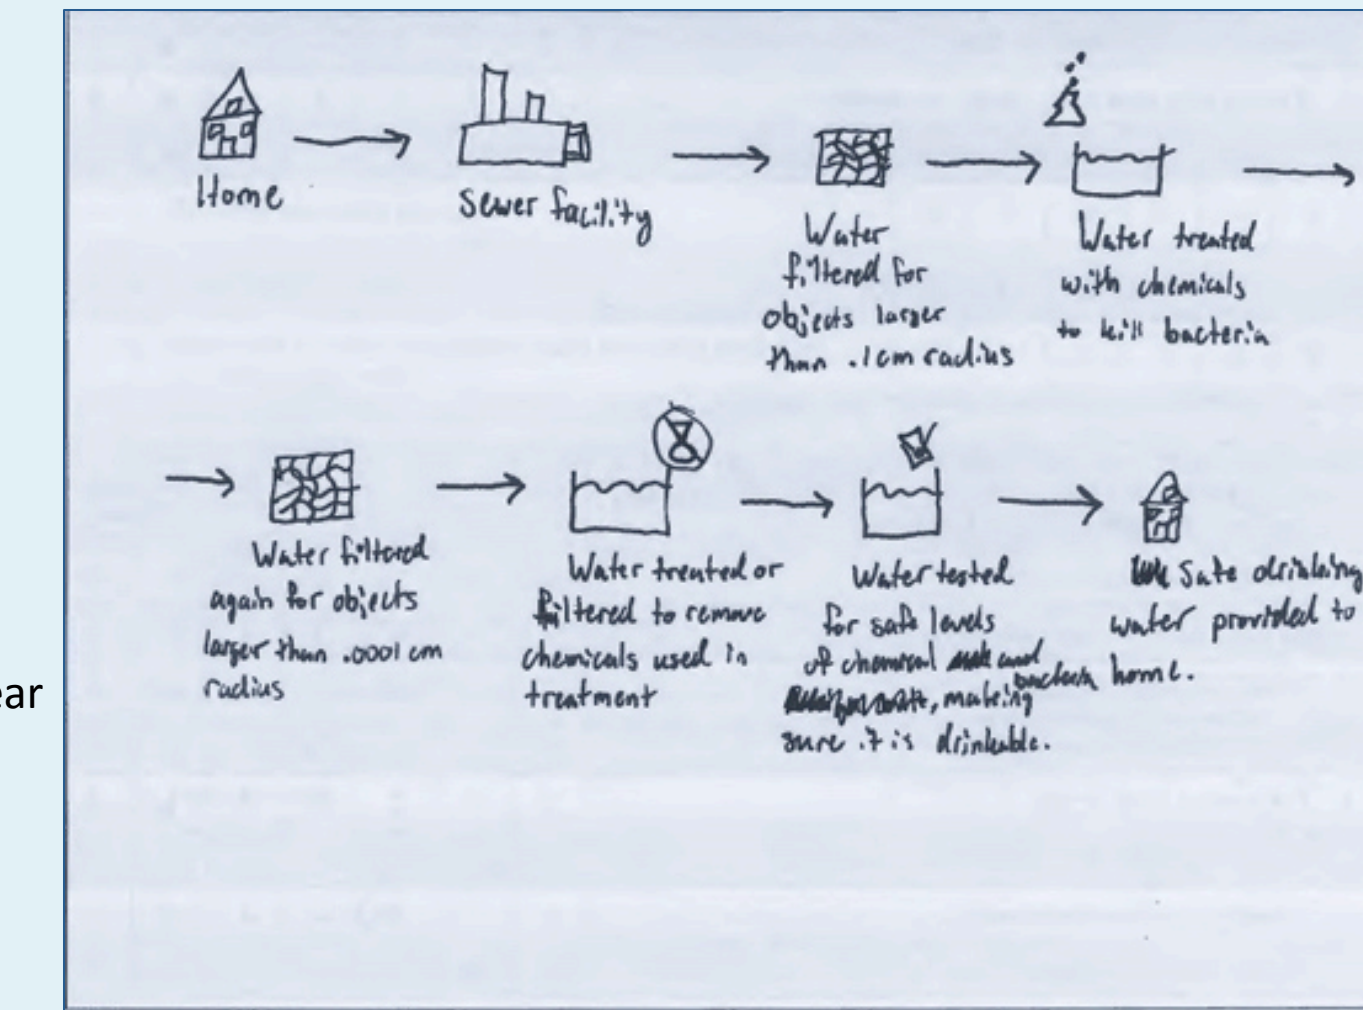 Home
sewer facility
Water
filtered for
objects larger
than .1cm radius
Water treated
with chemicals
to kill bacteria
Water filtered
again for objects
larger than .0001 cm
radius
Water treated or
filtered to remove
chemicals used in
treatment
Water tested
for safe levels
of chemical and
bacteria
, making
sure it is drinkable.
Safe drinking
water provided to
home.
ear